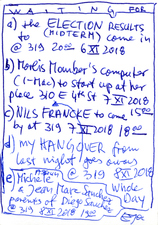 WAITING FOR
a) the ELECTION RESULTS
(MIDTERM) come in
@ 319 20:00 6 XI 2018
b) Molly's Momber's computer
(1-Mac) to start up at her
place 310 E 4th St 7 XI 2018
c) NILS FRANCKE to come
by at 319 7 XI 2018 18:00
d) my HANGOVER from
last night goes away
@ 319 8 XI 2018
e) Michele
& Jean Marc Sanchez
parents of Diego Sanchez
@ 319 8 XI 2018 19:00
Whole
Day